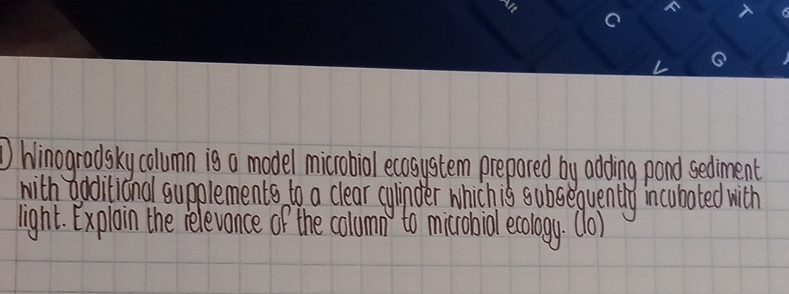 Alt C F T 6
V G
1) Winogradsky column is a model microbial ecosystem prepared by adding pond sediment
with additional supplements to a clear cylinder which is subsequently incubated with
light. Explain the relevance of the column to microbial ecology. (10)